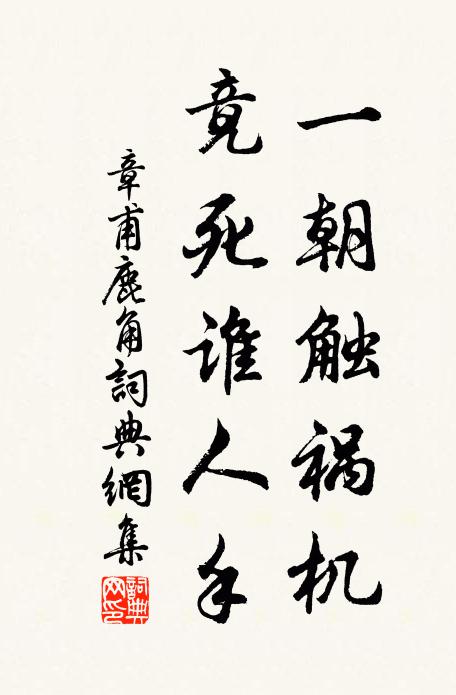 一朝触祸机
竟死谁人手
章甫鹿角詞典網集
詞典网印